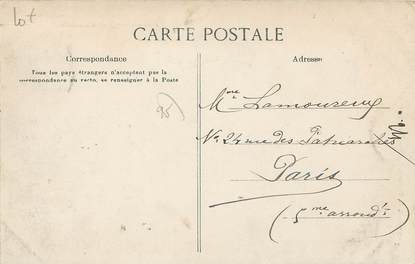 lot
CARTE POSTALE
Correspondance
Tous les pays étrangers n'acceptent pas la
correspondance au recto, se renseigner à la Poste
Adresse
95
Mme Lamoureux
No 24 rue des Patriarches
Paris
(5me arrondt)